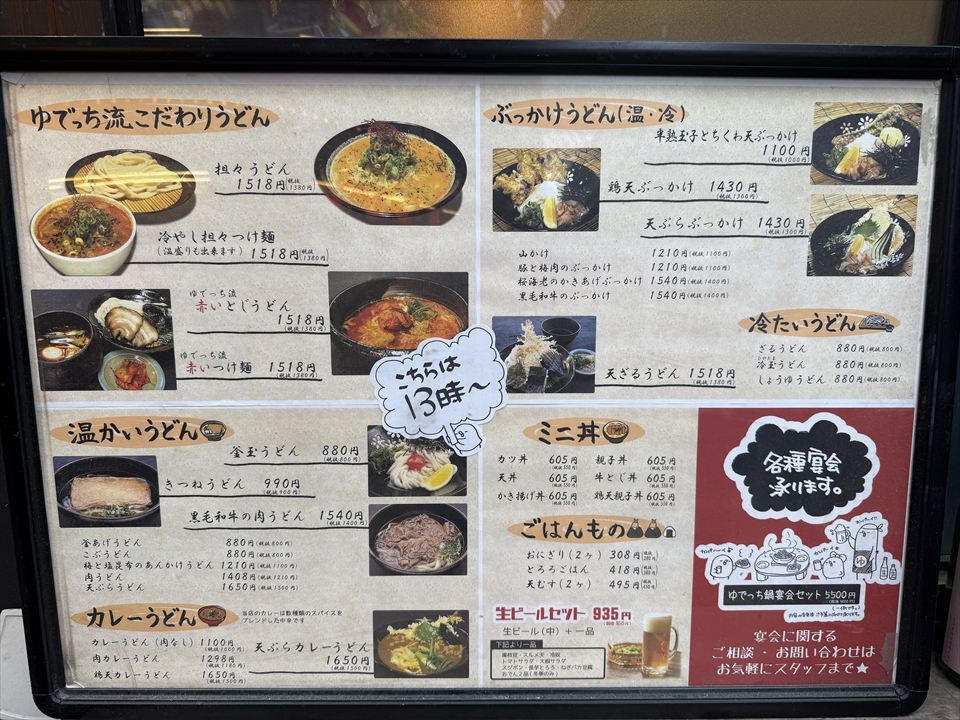 ゆでっち流こだわりうどん
担々うどん
1518円(税抜1380円)
冷やし担々つけ麺
(温盛りも出来ます) 1518円(税抜1380円)
ゆでっち流
赤いとじうどん
1518円(税抜1380円)
ゆでっち流
赤いつけ麺 1518円(税抜1380円)
ぶっかけうどん(温・冷)
半熟玉子とちくわ天ぶっかけ
1100円(税抜1000円)
鶏天ぶっかけ 1430円(税抜1300円)
天ぷらぶっかけ 1430円(税抜1300円)
山かけ 1210円(税抜1100円)
豚と梅肉のぶっかけ 1210円(税抜1100円)
桜海老のかきあげぶっかけ 1540円(税抜1400円)
黒毛和牛のぶっかけ 1540円(税抜1400円)
天ざるうどん 1518円(税抜1380円)
冷たいうどん
ざるうどん 880円(税抜800円)
冷玉うどん 880円(税抜800円)
しょうゆうどん 880円(税抜800円)
こちらは
13時〜
温かいうどん
釜玉うどん 880円(税抜800円)
きつねうどん 990円(税抜900円)
黒毛和牛の肉うどん 1540円(税抜1400円)
釜あげうどん 880円(税抜800円)
こぶうどん 880円(税抜800円)
梅と塩昆布のあんかけうどん 1210円(税抜1100円)
肉うどん 1408円(税抜1210円)
天ぷらうどん 1650円(税抜1500円)
カレーうどん
当店のカレーは数種類のスパイスを
ブレンドした中辛です
カレーうどん(肉なし) 1100円(税抜1000円)
肉カレーうどん 1298円(税抜1180円)
鶏天カレーうどん 1650円(税抜1500円)
天ぷらカレーうどん
1650円(税抜1500円)
ミニ丼
カツ丼 605円(税抜550円) 親子丼 605円(税抜550円)
天丼 605円(税抜550円) 牛とじ丼 605円(税抜550円)
かき揚げ丼 605円(税抜550円) 鶏天親子丼 605円(税抜550円)
ごはんもの
おにぎり(2ヶ) 308円(税抜280円)
とろろごはん 418円(税抜380円)
天むす(2ヶ) 495円(税抜450円)
生ビールセット 935円(税抜850円)
生ビール(中)+一品
下記より一品
トマトサラダ・大根サラダ
スジポン・長芋とろろ・ねぎバカ豆腐
おでん2品(冬季のみ)
各種宴会
承ります。
ゆでっち鍋宴会セット 5500円
宴会に関する
ご相談・お問い合わせは
お気軽にスタッフまで★